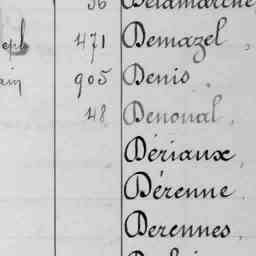 56 Delamarche
471 Demazel,
905 Denis,
48 Denoual,
Dériaux,
Dérenne,
Derennes,